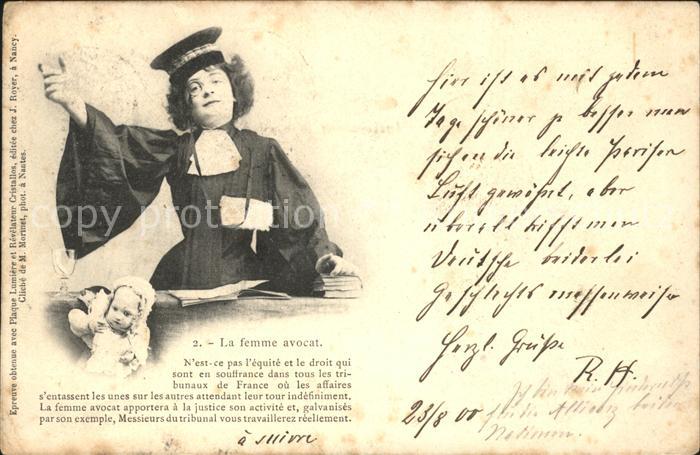 Epreuve obtenue avec Plaque Lumière et Révélateur Cristallos, éditée chez J. Royer, à Nancy.
Cliché de M. Morinet, phot. à Nantes.
2. - La femme avocat.
N'est-ce pas l'équité et le droit qui
sont en souffrance dans tous les tri-
bunaux de France où les affaires
s'entassent les unes sur les autres attendant leur tour indéfiniment.
La femme avocat apportera à la justice son activité et, galvanisés
par son exemple, Messieurs du tribunal vous travaillerez réellement.
à suivre
Hier ist es mit jedem
Tage schöner je besser man
sich an die leichte Pariser
Luft gewöhnt, aber
überall trifft man
Deutsche beiderlei
Geschlechts massenweise
Herzl. Grüße
R. H.
23/8 00
Ich bin
die Allianz beider
Nationen.
copy protected